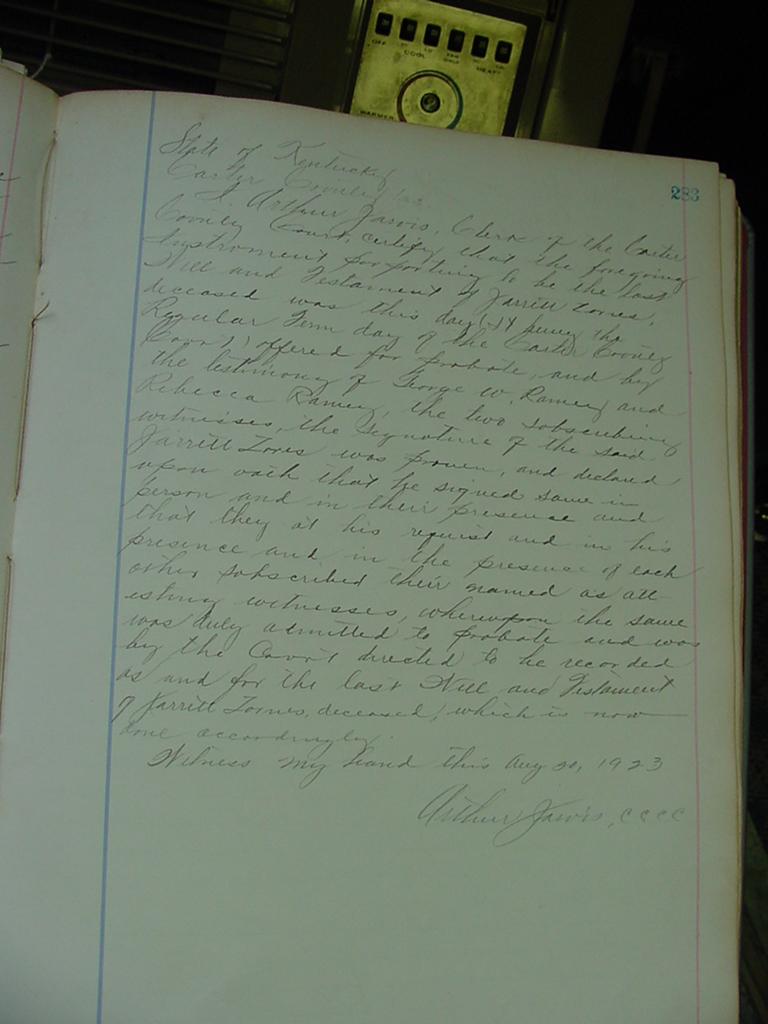 OFF
COOL
HEAT
WARMER
283
State of Kentucky
Carter County
I Arthur Jarvis, Clerk of the Carter
County Court, certify that the foregoing
Instrument purporting to be the last
Will and Testament of Jarritt
deceased was this day the
Regular Term day of the Carter County
Court, offered for probate, and by
the testimony of George W. Ramey and
Rebecca Ramey, the two subscribing
witnesses, the signature of the said
Jarritt was proven, and declared
upon oath that he signed same in
person and in their presence and
that they at his request and in his
presence and in the presence of each
other subscribed their named as att-
esting witnesses, whereupon the same
was duly admitted to probate and was
by the Court directed to be recorded
as and for the last Will and Testament
of Jarritt deceased, which is now
done accordingly.
Witness my hand this Aug 20, 1923
Arthur Jarvis, CCCC